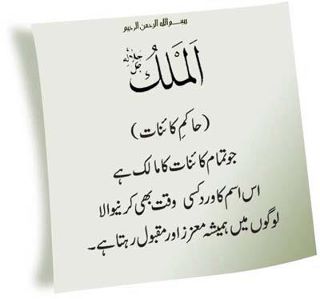 بسم الله الرحمن الرحیم
اَلْمَلِکُ جل جلالہ
(حاکمِ کائنات)
جو تمام کائنات کا مالک ہے
اس اسم کا ورد کسی وقت بھی کرنیوالا
لوگوں میں ہمیشہ معزز اور مقبول رہتا ہے۔